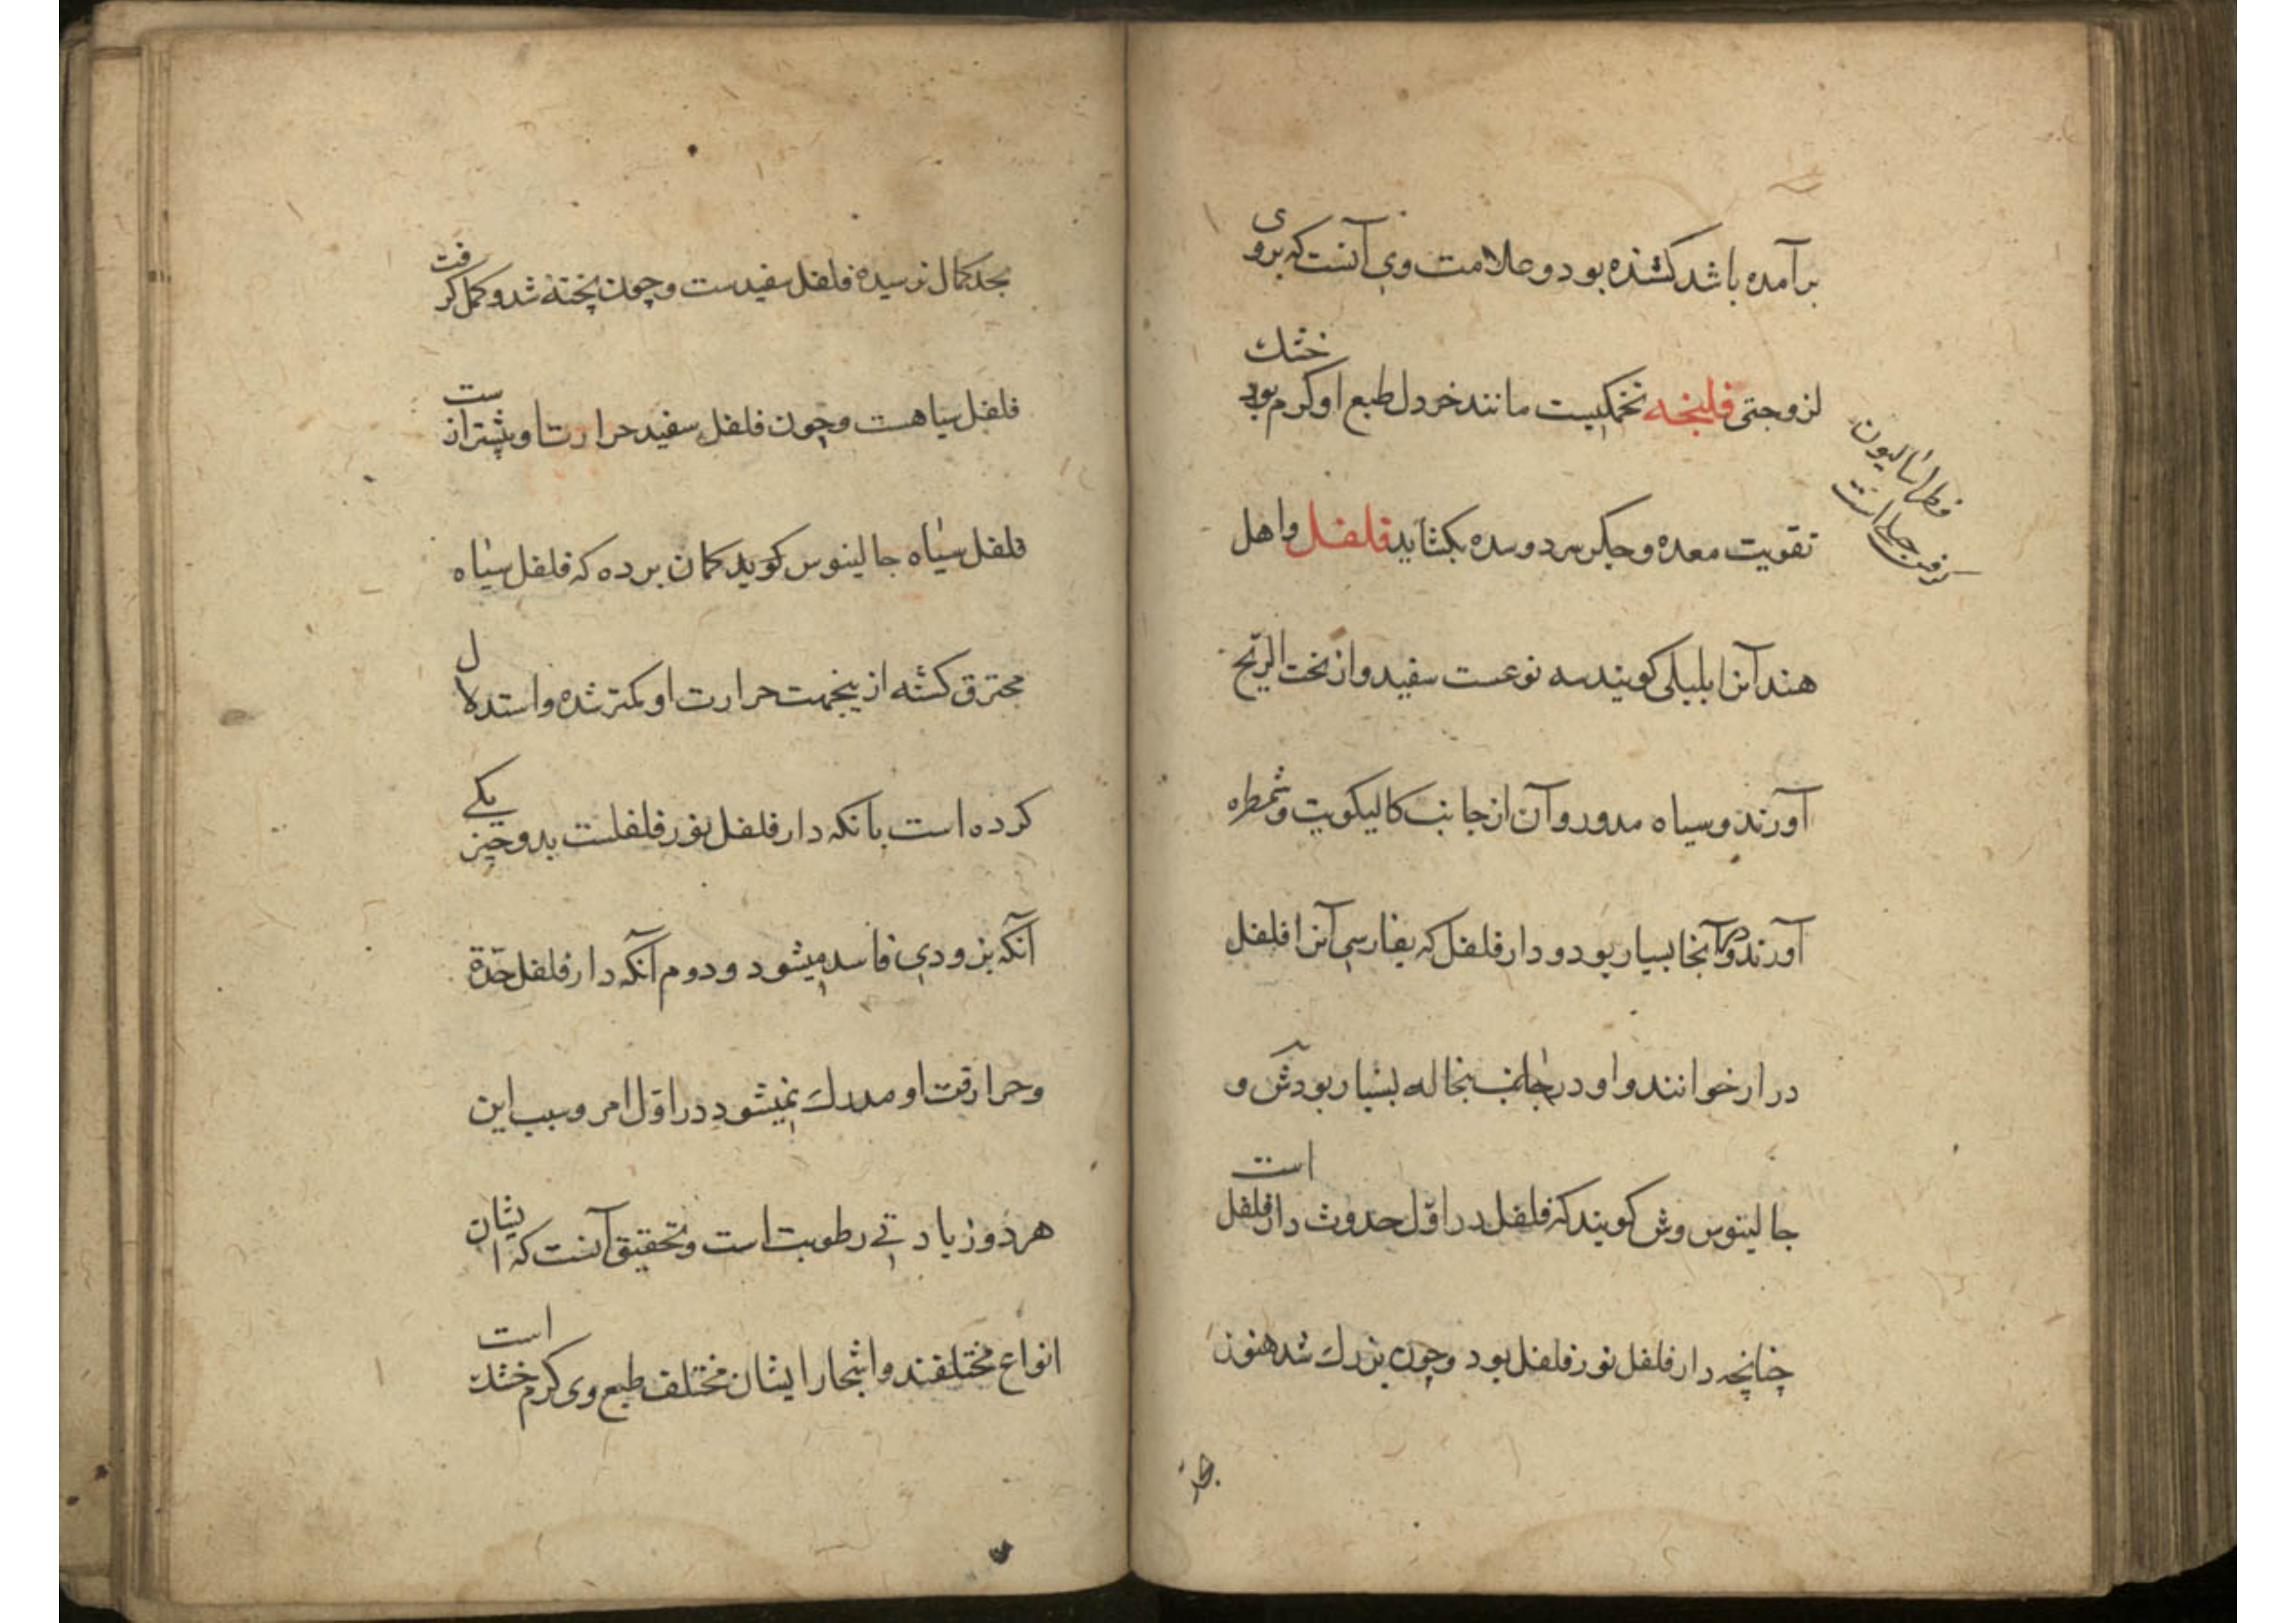 برآمده باشد کشنده بود و علامت وی آنست که بروی
لزوجتی فلنجه تخمکیست مانند خردل طبع او کرم بود خشك
تقویت معده و جکر سرد و سده بکشاید فلفل و اهل
هند آنرا بلبلی کویند سه نوعست سفید و از تحت الریح
آورند و سیاه مدور و آن از جانب کالیکویت و شمطره
آورند و آنجا بسیار بود و دار فلفل که بفارسی آنرا فلفل
دراز خوانند و او در جانب بنجاله بسیار بود ش و
جالینوس و ش کویند که فلفل در اوّل حدوث دار فلفل است
چنانچه دار فلفل نور فلفل بود و چون بزرك شد هنوز
فطراسالیون
کرفس جبلی است
بحد
بحد کمال نرسیده فلفل سفیدست و چون پخته شد و کمل کرفت
فلفل سیاهست و چون فلفل سفید حرارت او بیشتر از ست
فلفل سیاه جالینوس کوید کمان برده که فلفل سیاه
محترق کشته از ینجهت حرارت او کمتر شده و استدلال
کرده است بانکه دار فلفل نور فلفلست بدو چیز یکی
آنکه بزودی فاسد میشود و دوم آنکه دار فلفل حدّة
و حرارقت او مدرك نمیشود در اوّل امر و سبب این
هر دو زیادتی رطوبت است و تحقیق آنست که ایشان
انواع مختلفند و اشجار ایشان مختلف طبع وی کرم خشك است